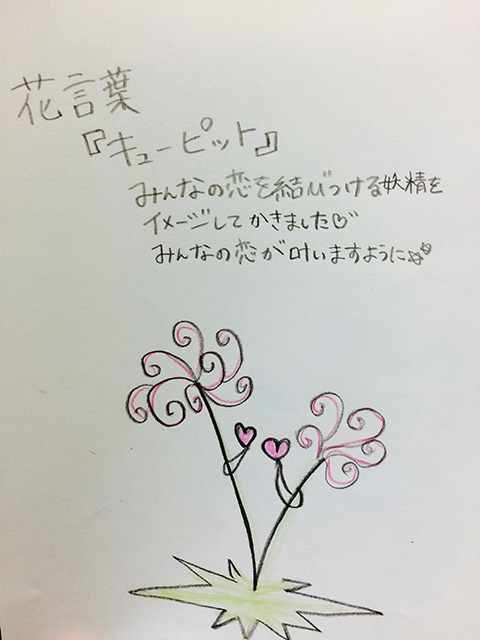 花言葉
『キューピット』
みんなの恋を結びつける妖精を
イメージしてかきました♡
みんなの恋が叶いますように☆☆